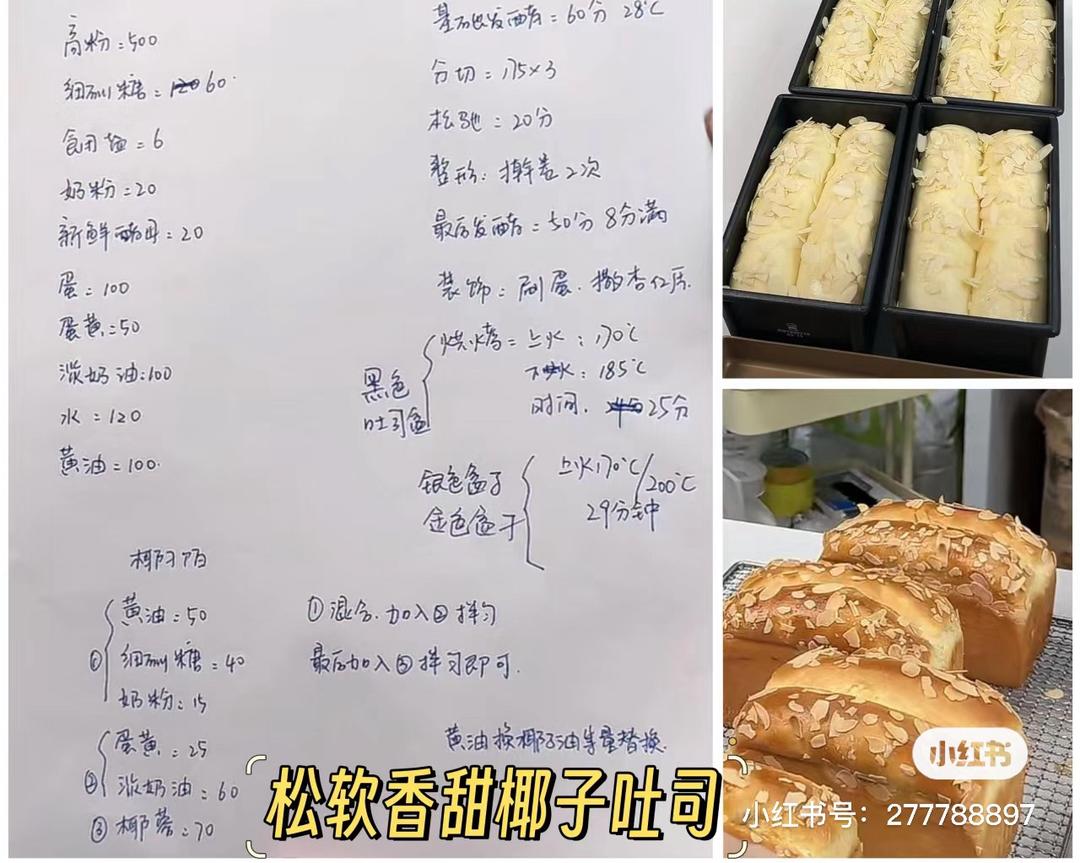 高粉=500
细砂糖=120 60
食用盐=6
奶粉=20
新鲜酵母=20
蛋=100
蛋黄=50
淡奶油=100
水=120
黄油=100
基础发酵=60分 28℃
分切=175×3
松驰=20分
整形:擀卷2次
最后发酵=50分 8分满
装饰=刷蛋.撒杏仁片.
黑色
吐司盒
烘烤=上火:170℃
下火:185℃
时间. 25分
银色盒子
金色盒子
上火170℃/200℃
29分钟
椰子陷
①
黄油=50
细砂糖=40
奶粉=15
②
蛋黄=25
淡奶油=60
③椰蓉=70
①混合.加入②拌匀
最后加入③拌匀即可.
黄油换椰子油等量替换.
松软香甜椰子吐司
小红书
小红书号：277788897